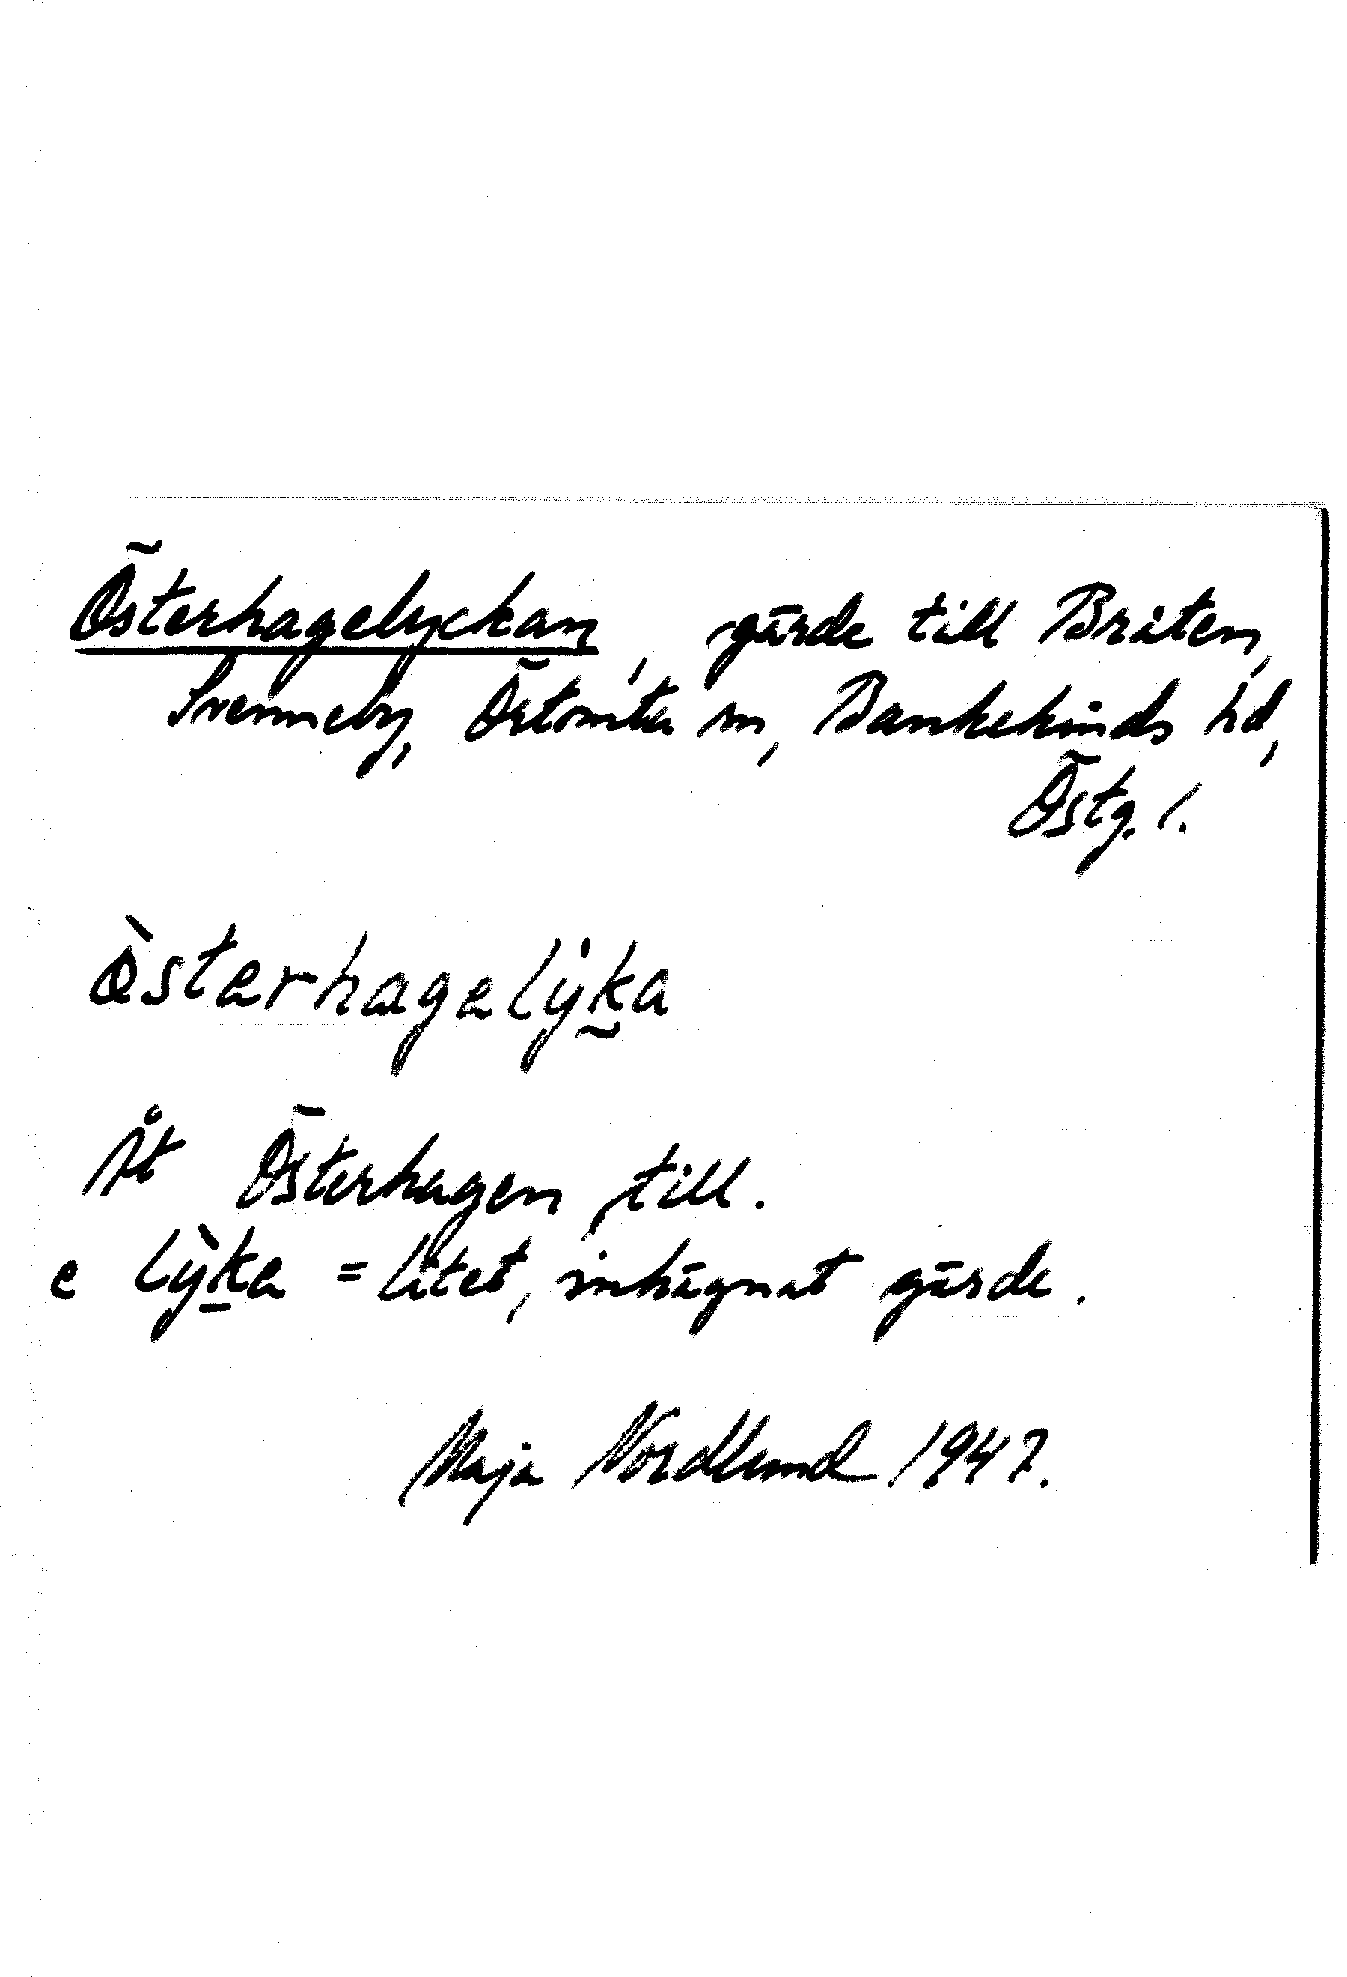 Österhagelyckan, gärde till Bråten,
Svenneby, Östomta sn, Bankekinds hd,
Östg. l.
Òsterhagelẏ̀k̰a
Åt Österhagen till.
e lỳk̠a = litet, inhägnat gärde.
Maja Nordlund 1947.